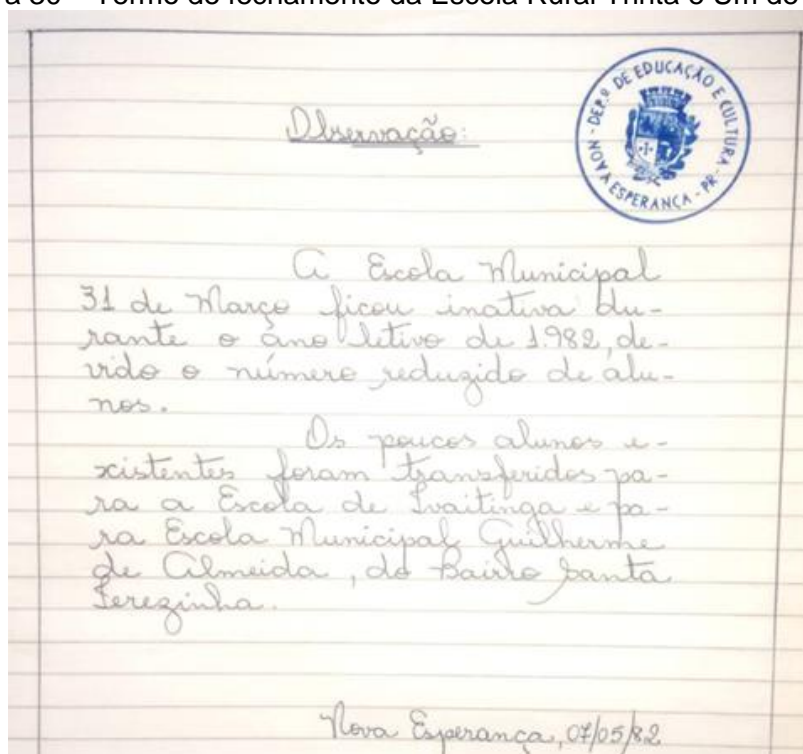 a 80 – Termo de fechamento da Escola Rural Trinta e Um de
DEP.º DE EDUCAÇÃO E CULTURA
NOVA ESPERANÇA - PR -
Observação:
A Escola Municipal
31 de Março ficou inativa du-
rante o ano letivo de 1982, de-
vido o número reduzido de alu-
nos.
Os poucos alunos e-
xistentes foram transferidos pa-
ra a Escola de Ivaitinga e pa-
ra Escola Municipal Guilherme
de Almeida, do Bairro Santa
Terezinha.
Nova Esperança, 07/05/82